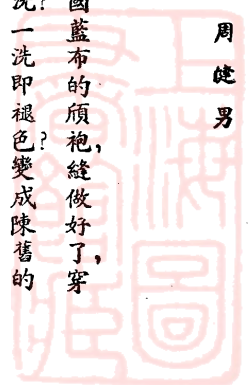 周健男
國藍布的頎袍，縫做好了，穿
洗？一洗即褪色？變成陳舊的
上海圖
書館藏